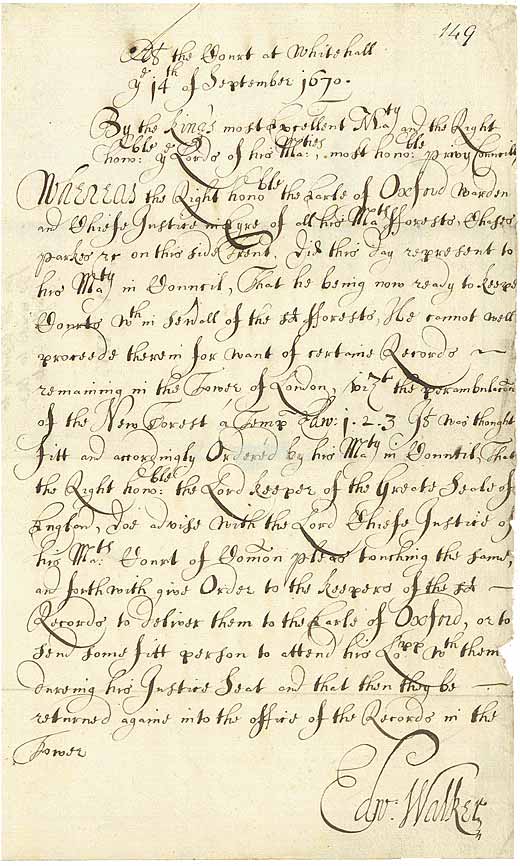 149
Att the Court at Whitehall
ye 14th of September 1670.
By the Kings most Excellent Maty and the Right
honoble: ye Lords of his Maties: most honoble: privy Councill
Whereas the Right honoble the Earle of Oxford Warden
and Chiefe Justice in Eyre of all his Mats fforests, Chases,
Parkes &c on this side Trent, Did this day represent to
his Maty in Councill, That he being now ready to keepe
Courts wthin severall of the sd fforests, He cannot well
proceede therein for want of certaine Records
remaining in the Tower of London, vizt the perambulacons
of the New Forest a Temp Edw: 1. 2. 3 It was thought
fitt and accordingly Ordered by his Maty in Councill, That
the Right honoble: the Lord Keeper of the Greate Seale of
England, doe advise with the Lord Chiefe Justice of
his Mats: Court of Comon pleas touching the same,
and forthwith give Order to the Keepers of the sd
Records to deliver them to the Earle of Oxford, or to
send some fitt person to attend his Lopp wth them
dureing his Justice Seat and that then they be
returned againe into the office of the Records in the
Tower
Edw: Walker